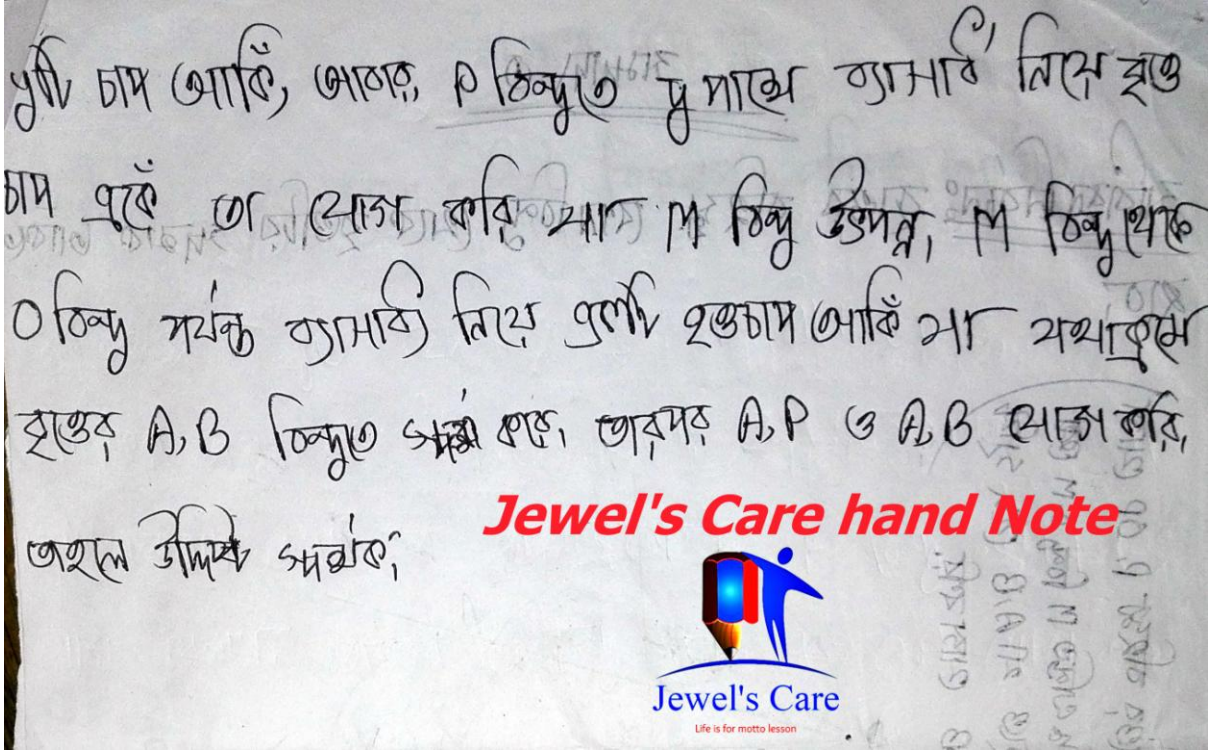 দুটি চাপ আকিঁ, আবার, P বিন্দুতে দু পাশে ব্যাসার্ধ নিয়ে বৃত্ত
চাপ একেঁ তা যোগ করি যাতে M বিন্দু উৎপন্ন, M বিন্দু থেকে
O বিন্দু পর্যন্ত ব্যাসার্ধ নিয়ে একটি বৃত্তচাপ আকিঁ যা যথাক্রমে
বৃত্তের A, B বিন্দুতে স্পর্শ করে, তারপর A, P ও A, B যোগ করি,
তাহলে উদ্দিষ্ট স্পর্শক;
Jewel's Care hand Note
Jewel's Care
Life is for motto lesson